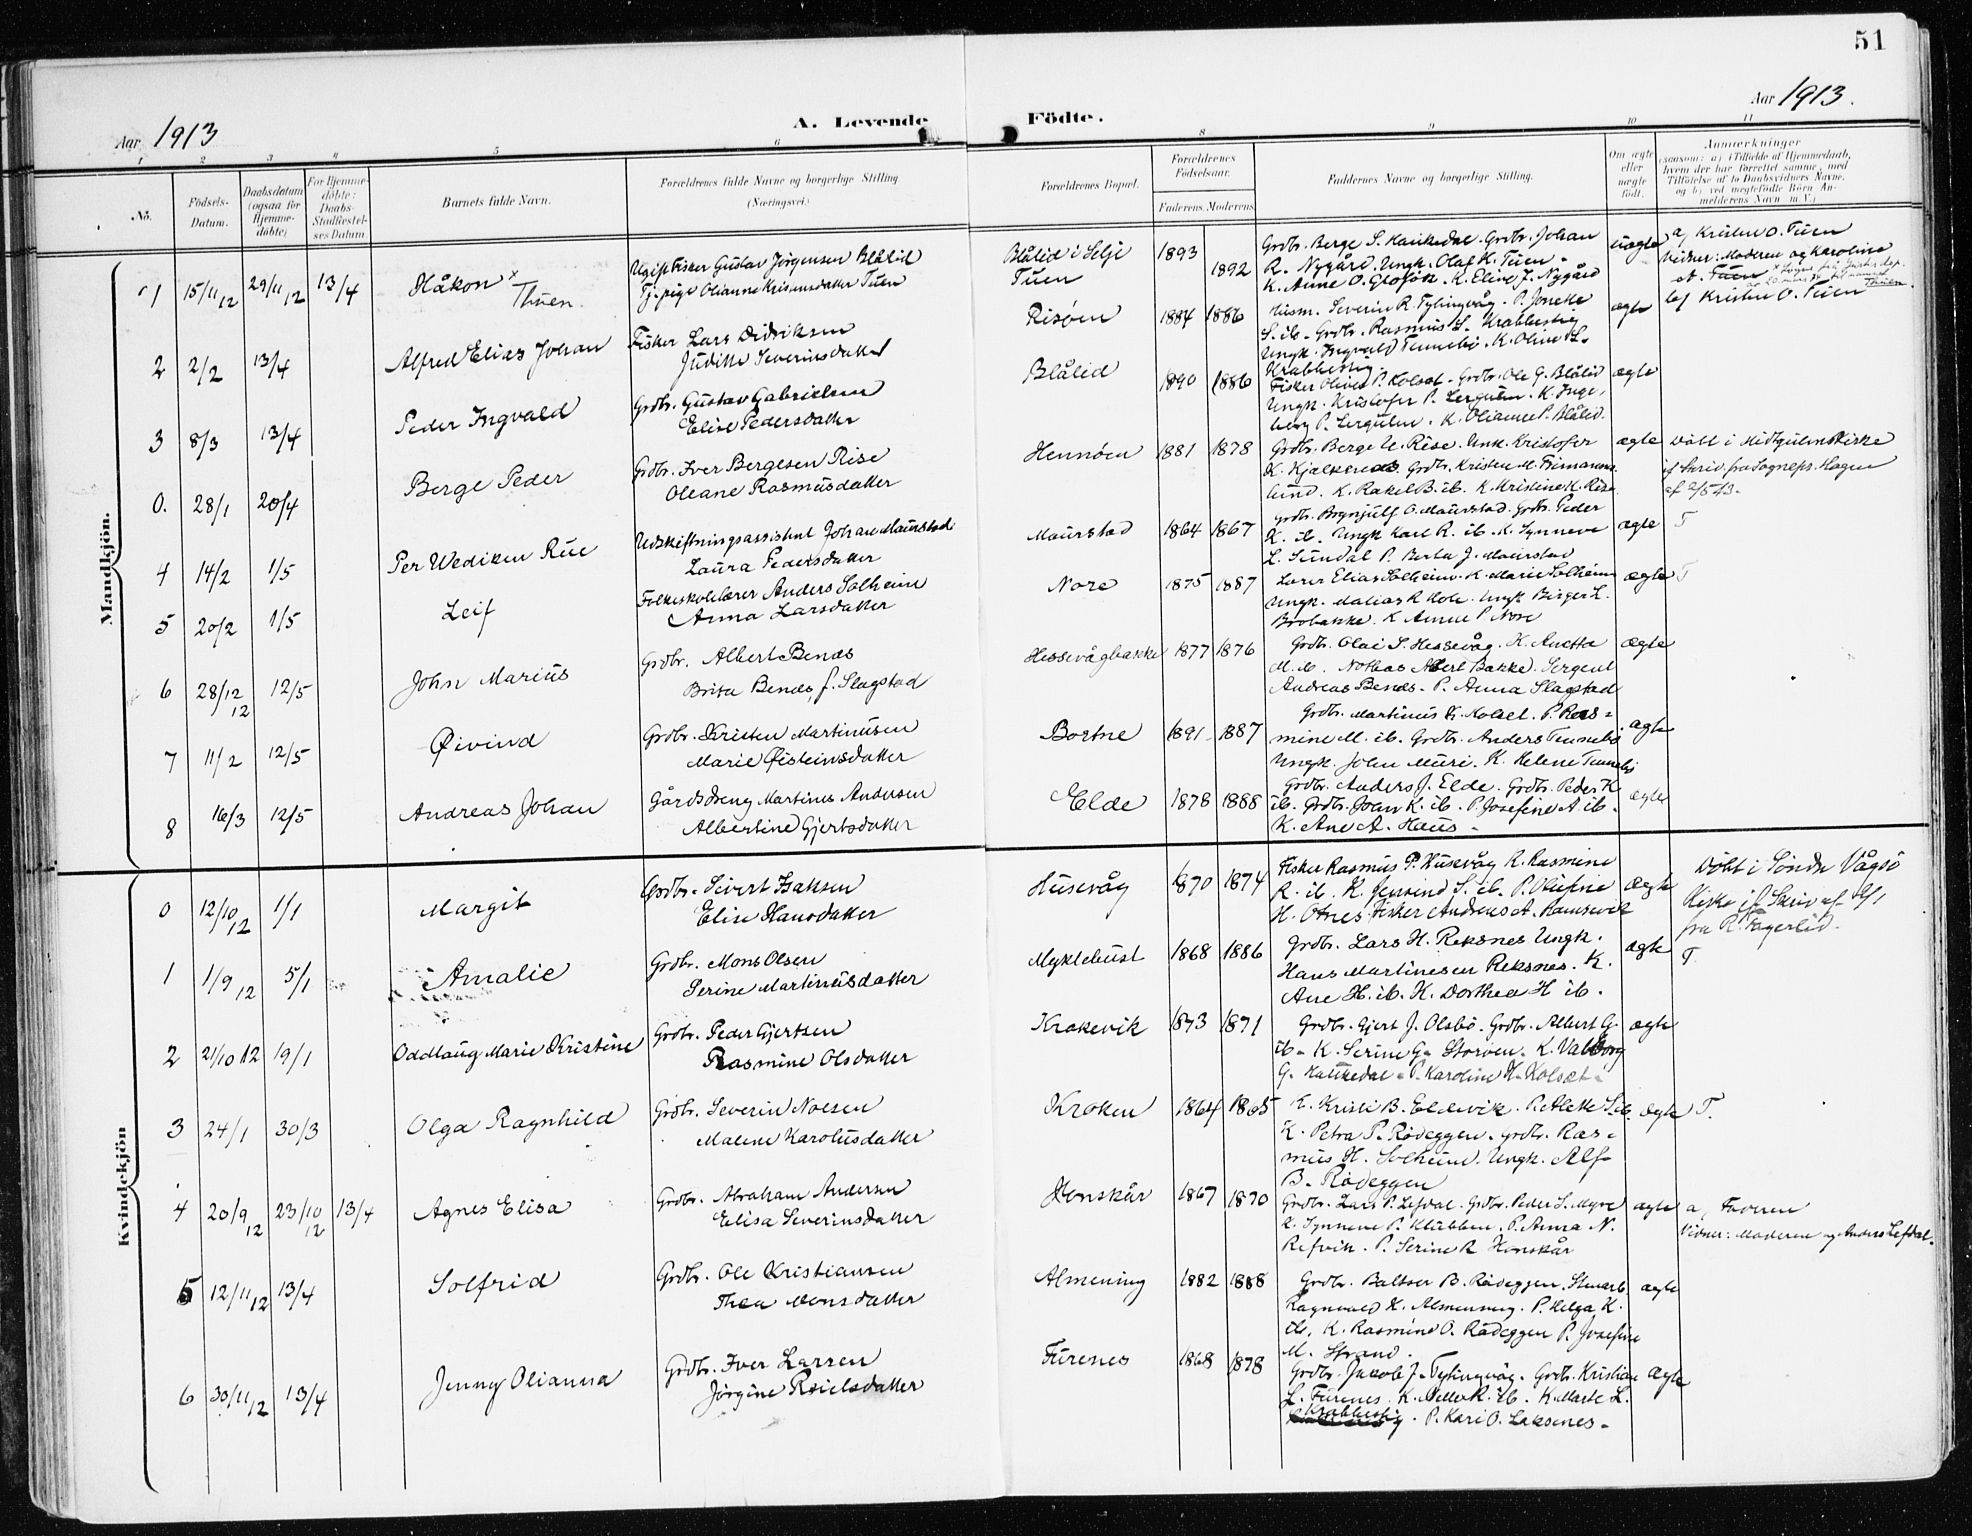 51
Aar 1913
A. Levende Födte.
Aar 1913.
1 2 3 4 5 6 8 9 10 11
No.
Födsels-Datum.
Daabsdatum (ogsaa for Hjemmedöbte)
For Hjemmedöbte: Daabs-Stadfæstelses Datum.
Barnets fulde Navn.
Forældrenes fulde Navne og borgerlige Stilling. (Næringsvei.)
Forældrenes Bopæl.
Forældrenes Födselsaar.
Faderens. Moderens.
Faddernes Navne og borgerlige Stilling.
Om ægte eller uægte födt.
Anmærkninger
(saasom: a) i Tilfælde af Hjemmedaab, hvem der har forrettet samme, med Tilföielse af to Daabsvidners Navne, og b) ved uægtefödte Börn Anmelderens Navn m. V.)
Mandkjön.
1 15/11 12 29/11 12 13/4 Håkon x Thuen.
Ugift Fisker Gustav Jørgensen Blålid
Tj. pige Olianne Kristensdatter Tuen
Blålid i Selje
Tuen
1893 1892
Grdbr. Berge S. Haukedal. Grdbr. Johan
R. Nygård. Ungk. Olaf K. Tuen.
K. Anne O. K. Eline J. Nygård
uægte
a, Kristen O. Tuen
Vidner: Moderen og Karoline
b) Kristen O. Tuen
2 2/2 13/4 Alfred Elias Johan
Fisker Lars Didriksen
Juditte Severinsdatter
Risøen 1884 1886
Husm. Severin R. Tytingvåg. P. Jonette
S. ib. Grdbr. Rasmus L. Krabbestig
Ungk. Ingvald Tennebø. K. Oline L.
Krabbestig
ægte
3 8/3 13/4 Peder Ingvald
Grdbr. Gustav Gabrielsen
Elise Pedersdatter
Blålid 1890 1886
Fisker Oliver P. Kolset. Grdbr. Ole G. Blålid
Ungk. Kristofer P. Lergulen. K. Inge,
berg P. Lergulen. K. Olianne P. Blålid.
ægte
0. 28/1 20/4 Berge Peder
Grdbr. Iver Bergesen Rise
Oleane Rasmusdatter
Hennøen 1881 1878
Grdbr. Berge U. Rise. Unk. Kristofer
K. Kjelkenes Grdbr. Kristen M.
lund. K. Rakel B. ib. K. Kristine K. Rise
ægte
Døbt i Midtgulen Kirke
if. Skriv. fra Sognepr. Hagen
af 2/5 13.
4 14/2 1/5 Per Wediken Rue
Udskiftningsassistent Johan Maurstad
Laura Pedersdatter
Maurstad 1864 1867
Grdbr. Brynjulf O. Maurstad. Grdbr. Peder
R. ib. Ungk Karl R. ib. K. Synneve
L. Sundal P. Berta J. Maurstad
ægte T
5 20/2 1/5 Leif
Folkeskolelærer Anders Solheim
Anna Larsdatter
Nore 1875 1887
Lærer Elias Solheim. K. Marie Solheim
Ungk. Matias R Hole. Ungk Birger L.
Brobakke. K Anne P. Nore
ægte T
6 28/12 12 12/5 John Marius
Grdbr. Albert Benæs
Brita Benæs, f. Slagstad
Hessevågbakke 1877 1876
Grdbr. Olai S. Hessevåg. K. Anetta
M. ib. Notbas Albert Bakke. Sergent
Andreas Benæs. P. Anna Slagstad
ægte
7 11/2 12/5 Øivind
Grdbr. Kristen Martinusen
Marie Øisteinsdatter
Bortne 1891 1887
Grdbr. Martinus K. Kolset. P. Ras=
mine M. ib. Grdbr. Anders Tennebø
Ungk. John Muri. K. Helene Tennebø
ægte
8 16/3 12/5 Andreas Johan
Gårdsdreng Martines Andersen
Albertine Gjertsdatter
Elde 1878 1888
Grdbr. Anders J. Elde. Grdbr. Peder K
ib. Grdbr. Joan K. ib. P. Josefine A. ib.
K. Ane A. Haus.
ægte
Kvindekjön
0 12/10 12 1/1 Margit
Grdbr. Sivert Isaksen
Elise Hansdatter
Husevåg 1870 1874
Fisker Rasmus P. Husevåg K. Rasmine
R. ib. K. Jensine S. ib. P. Olufine
H. Otnes Fisker Andreas A. Ramsevik
ægte
Døbt i Søndre Vågsö
Kirke if. Skriv af
fra R. Fagerlid.
1 1/9 12 5/1 Amalie
Grdbr. Mons Olsen
Serine Martinusdatter
Myklebust 1868 1886
Grdbr. Lars H. Reksnes Ungk.
Hans Martinesen Reksnes. K.
Ane H. ib. K. Dorthea H ib.
ægte T.
2 21/10 12 19/1 Oddlaug Marie Kristine
Grdbr. Peder Gjertsen
Rasmine Olsdatter
Krakevik 1873 1871
Grdbr. Gjert J. Olsbö. Grdbr. Albert G.
ib. K. Serine G. Storöen. K. Valborg
G. Haukedal. P. Karoline H. Kolset.
ægte
3 24/1 30/3 Olga Ragnhild
Grdbr. Severin Nolsen
Malene Karolusdatter
Kroken 1864 1865
E. Kristi B. Eldevik. P. Alette S. ib.
K. Petra P. Rødeggen. Grdbr. Ras=
mus H. Solheim. Ungk. Alf
B. Rødeggen
ægte T.
4 20/9 12 23/10 12 13/4 Agnes Elisa
Grdbr. Abraham Andersen
Elisa Severinsdatter
Honskår 1867 1870
Grdbr. Lars P. Lefdal. Grdbr. Peder S. Myre
K. Synneve P. Klubben. P. Anna N.
Refvik. P. Serine R Honskår
ægte
a, Faderen
Vidner: Moderen og Anders Lefdal.
5 12/11 12 13/4 Solfrid
Grdbr. Ole Kristiansen
Thea Monsdatter
Almening 1882 1888
Grdbr. Baltser B. Rødeggen. Stuarb
Ragnvald K. Almenning. P. Helga K.
ib. K. Rasmine O. Rødeggen P. Josefine
M. Strand.
ægte
6 30/11 12 13/4 Jenny Olianna
Grdbr. Iver Larsen
Jörgine Roielsdatter
Furenes 1868 1878
Grdbr. Jakob J. Tytingvåg. Grdbr. Kristian
L. Furenes. K. Mette K. ib. K. Marte L.
Krabbestig. P. Kari O. Laksenes.
ægte